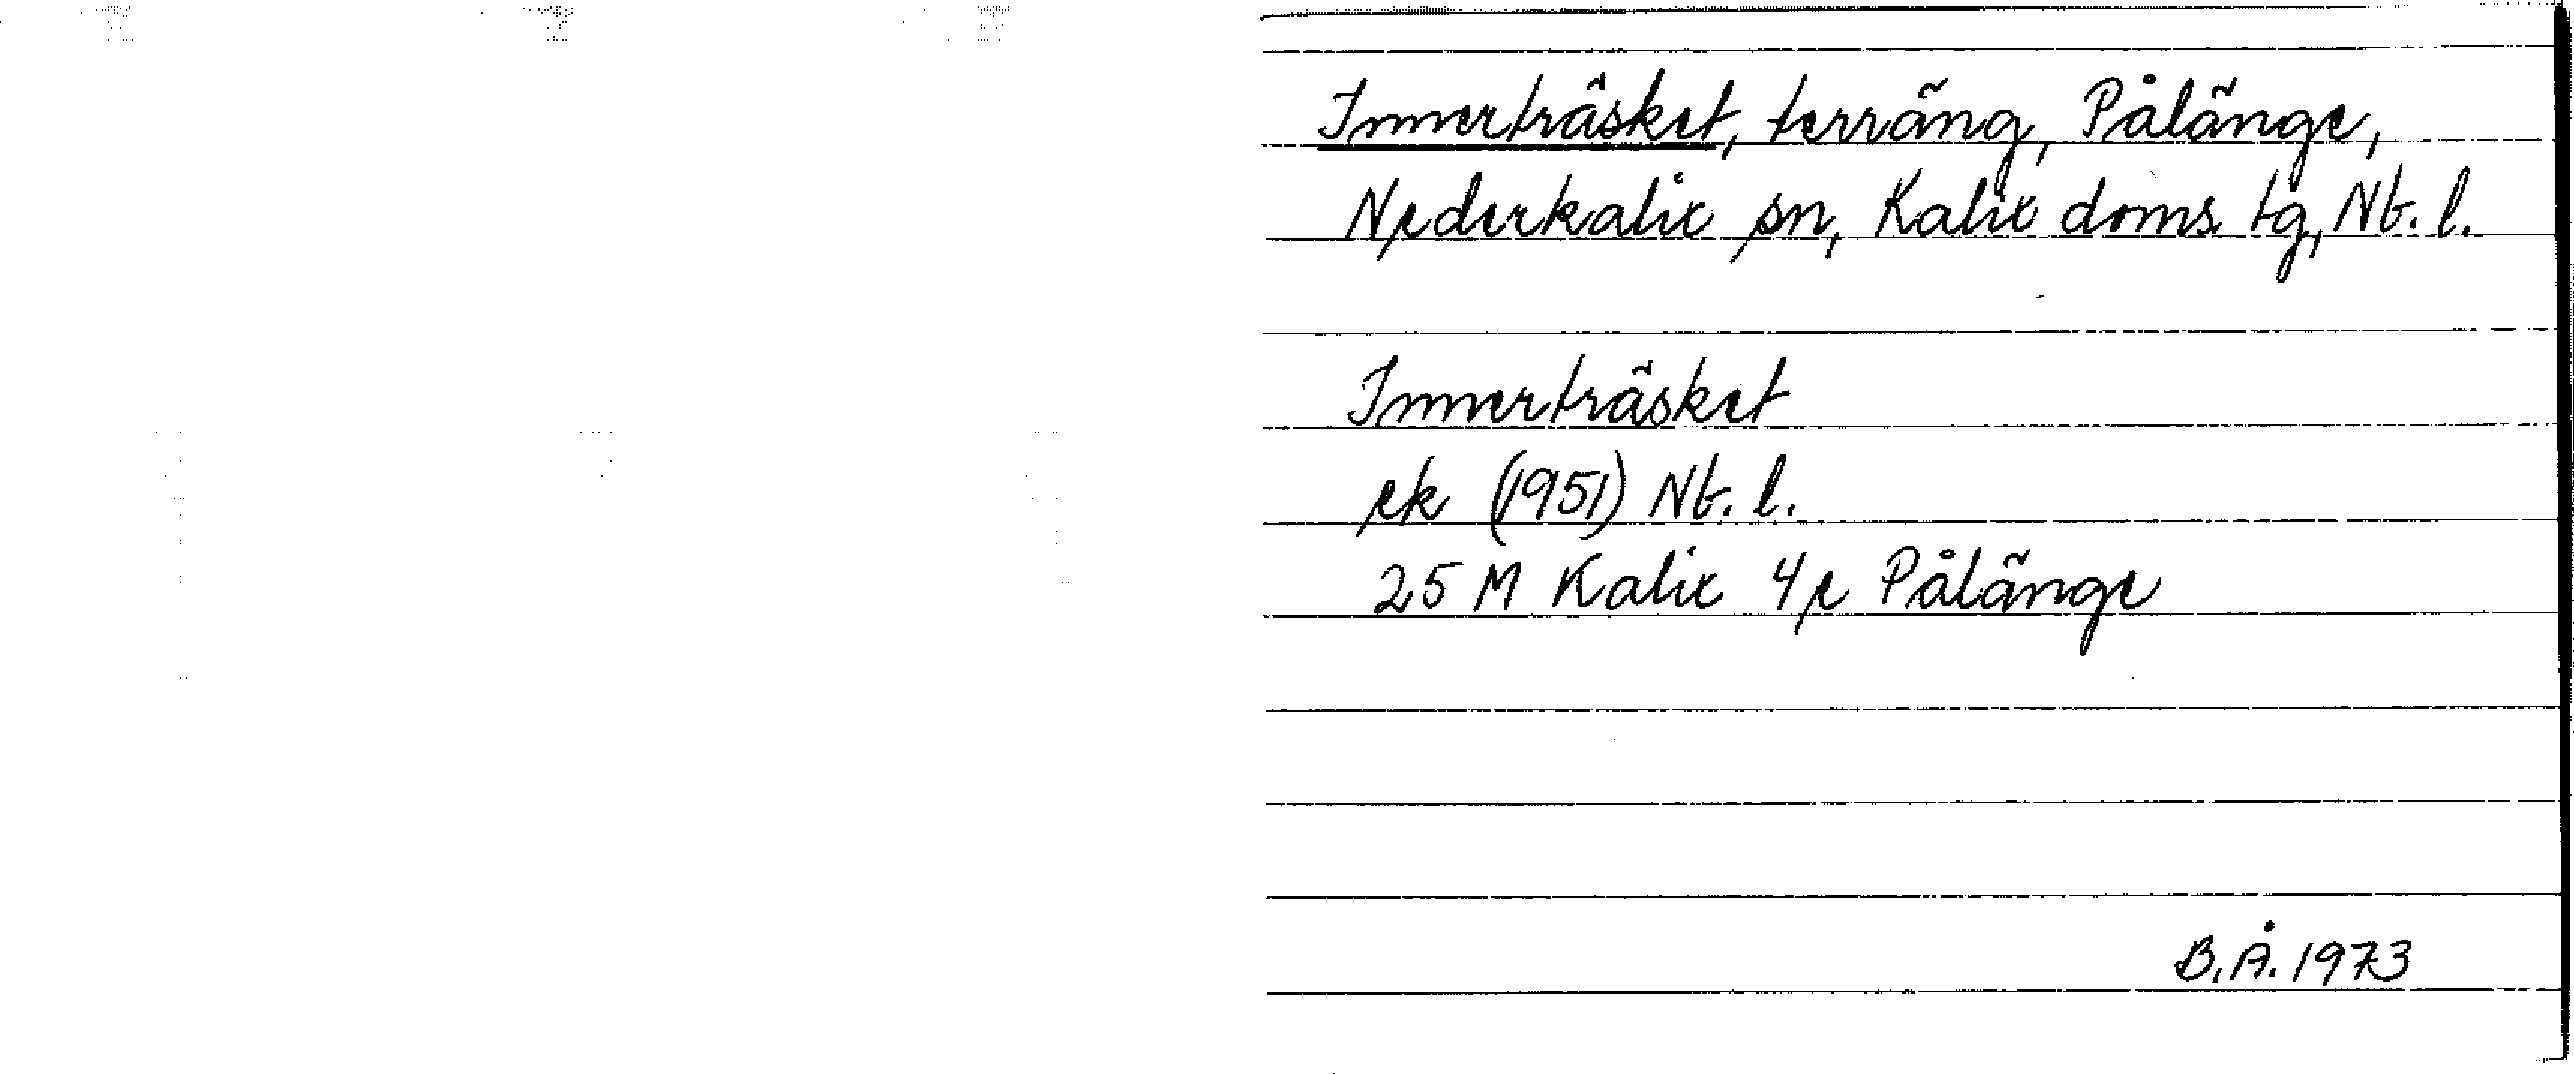 Innerträsket, terräng, Pålänge,
Nederkalix sn, Kalix doms. tg, Nb. l.
Innerträsket
ek (1951) Nb. l.
25 M Kalix 4e Pålänge
B.Å. 1973